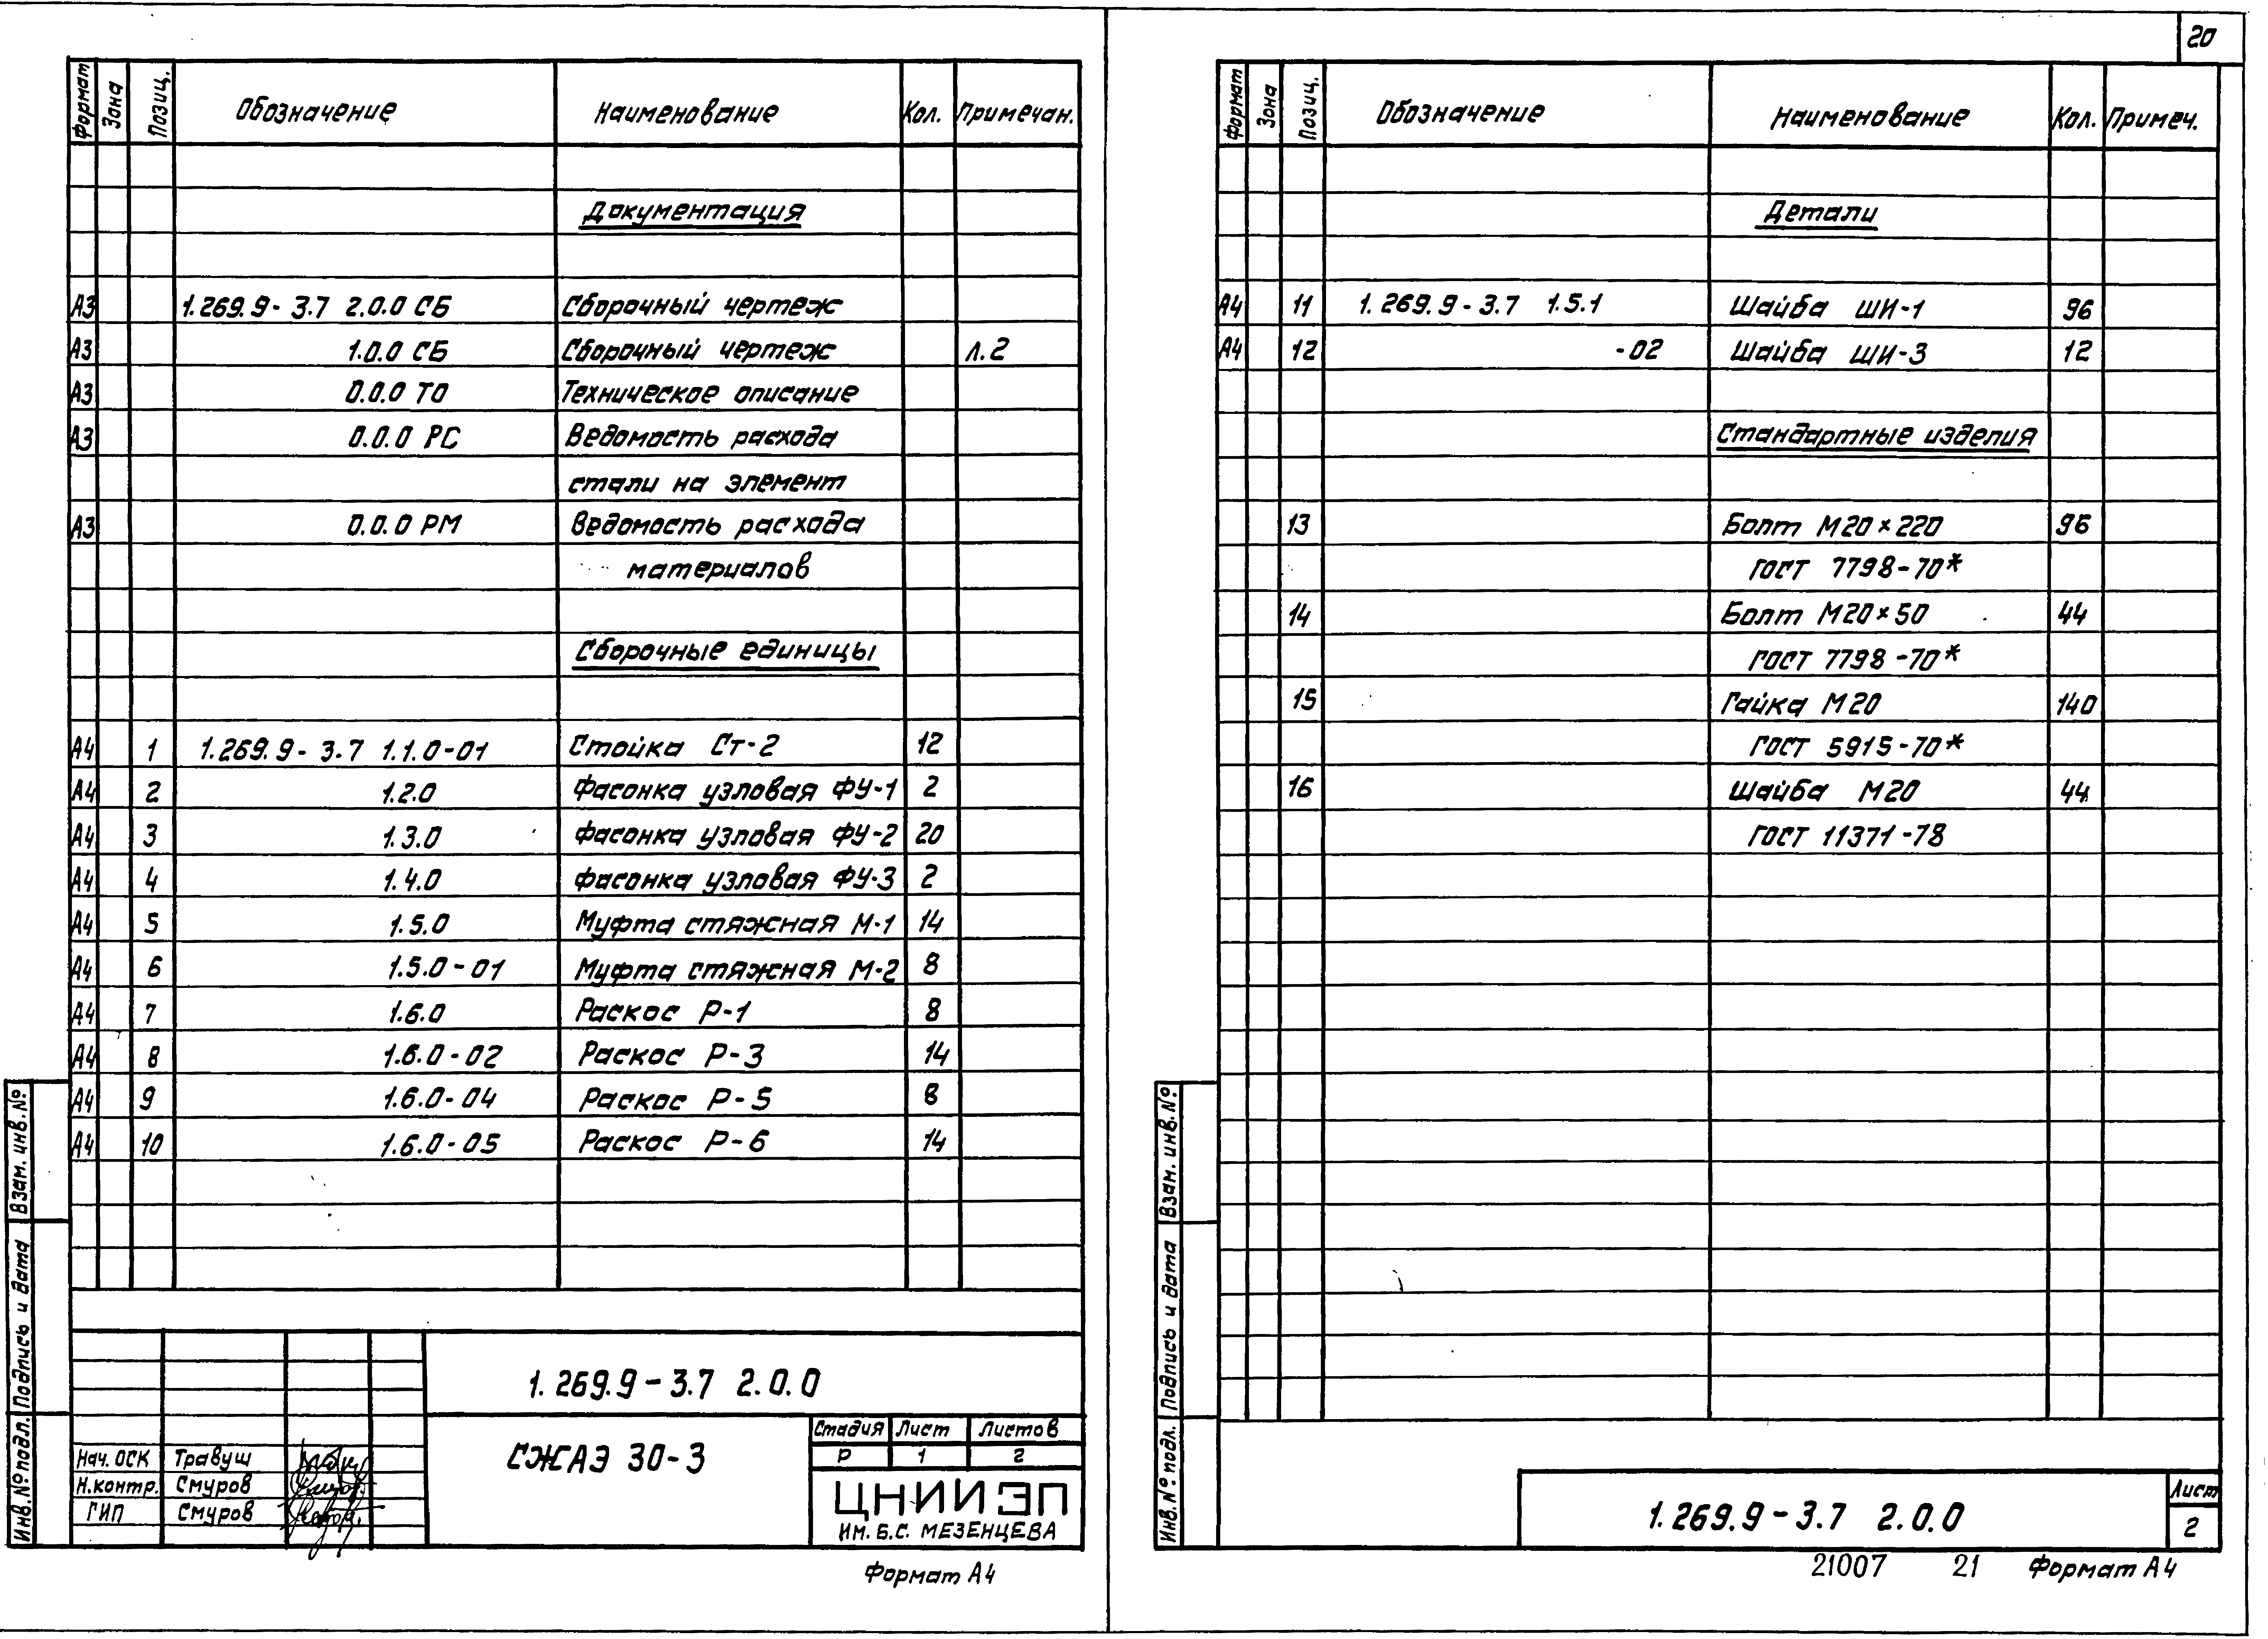 20
Формат Зона Позиц. Обозначение Наименование Кол. Примечан.
Документация
А3 1.269.9-3.7 2.0.0 СБ Сборочный чертеж
А3 1.0.0 СБ Сборочный чертеж л.2
А3 0.0.0 ТО Техническое описание
А3 0.0.0 РС Ведомость расхода
стали на элемент
А3 0.0.0 РМ Ведомость расхода
материалов
Сборочные единицы
А4 1 1.269.9-3.7 1.1.0-01 Стойка Ст-2 12
А4 2 1.2.0 Фасонка узловая ФУ-1 2
А4 3 1.3.0 Фасонка узловая ФУ-2 20
А4 4 1.4.0 Фасонка узловая ФУ-3 2
А4 5 1.5.0 Муфта стяжная М-1 14
А4 6 1.5.0-01 Муфта стяжная М-2 8
А4 7 1.6.0 Раскос Р-1 8
А4 8 1.6.0-02 Раскос Р-3 14
А4 9 1.6.0-04 Раскос Р-5 8
А4 10 1.6.0-05 Раскос Р-6 14
Взам. инв. №
Подпись и дата
Инв. № подл.
1.269.9-3.7 2.0.0
Нач. ОСК Травуш
Н.контр. Смуров
ГИП Смуров
СЖАЭ 30-3
Стадия Лист Листов
Р 1 2
ЦНИИЭП
ИМ. Б.С. МЕЗЕНЦЕВА
Формат А4
Формат Зона Позиц. Обозначение Наименование Кол. Примеч.
Детали
А4 11 1.269.9-3.7 1.5.1 Шайба ШИ-1 96
А4 12 -02 Шайба ШИ-3 12
Стандартные изделия
13 Болт М20×220 96
ГОСТ 7798-70*
14 Болт М20×50 44
ГОСТ 7798-70*
15 Гайка М20 140
ГОСТ 5915-70*
16 Шайба М20 44
ГОСТ 11371-78
Взам. инв. №
Подпись и дата
Инв. № подл.
1.269.9-3.7 2.0.0
Лист
2
21007 21 Формат А4